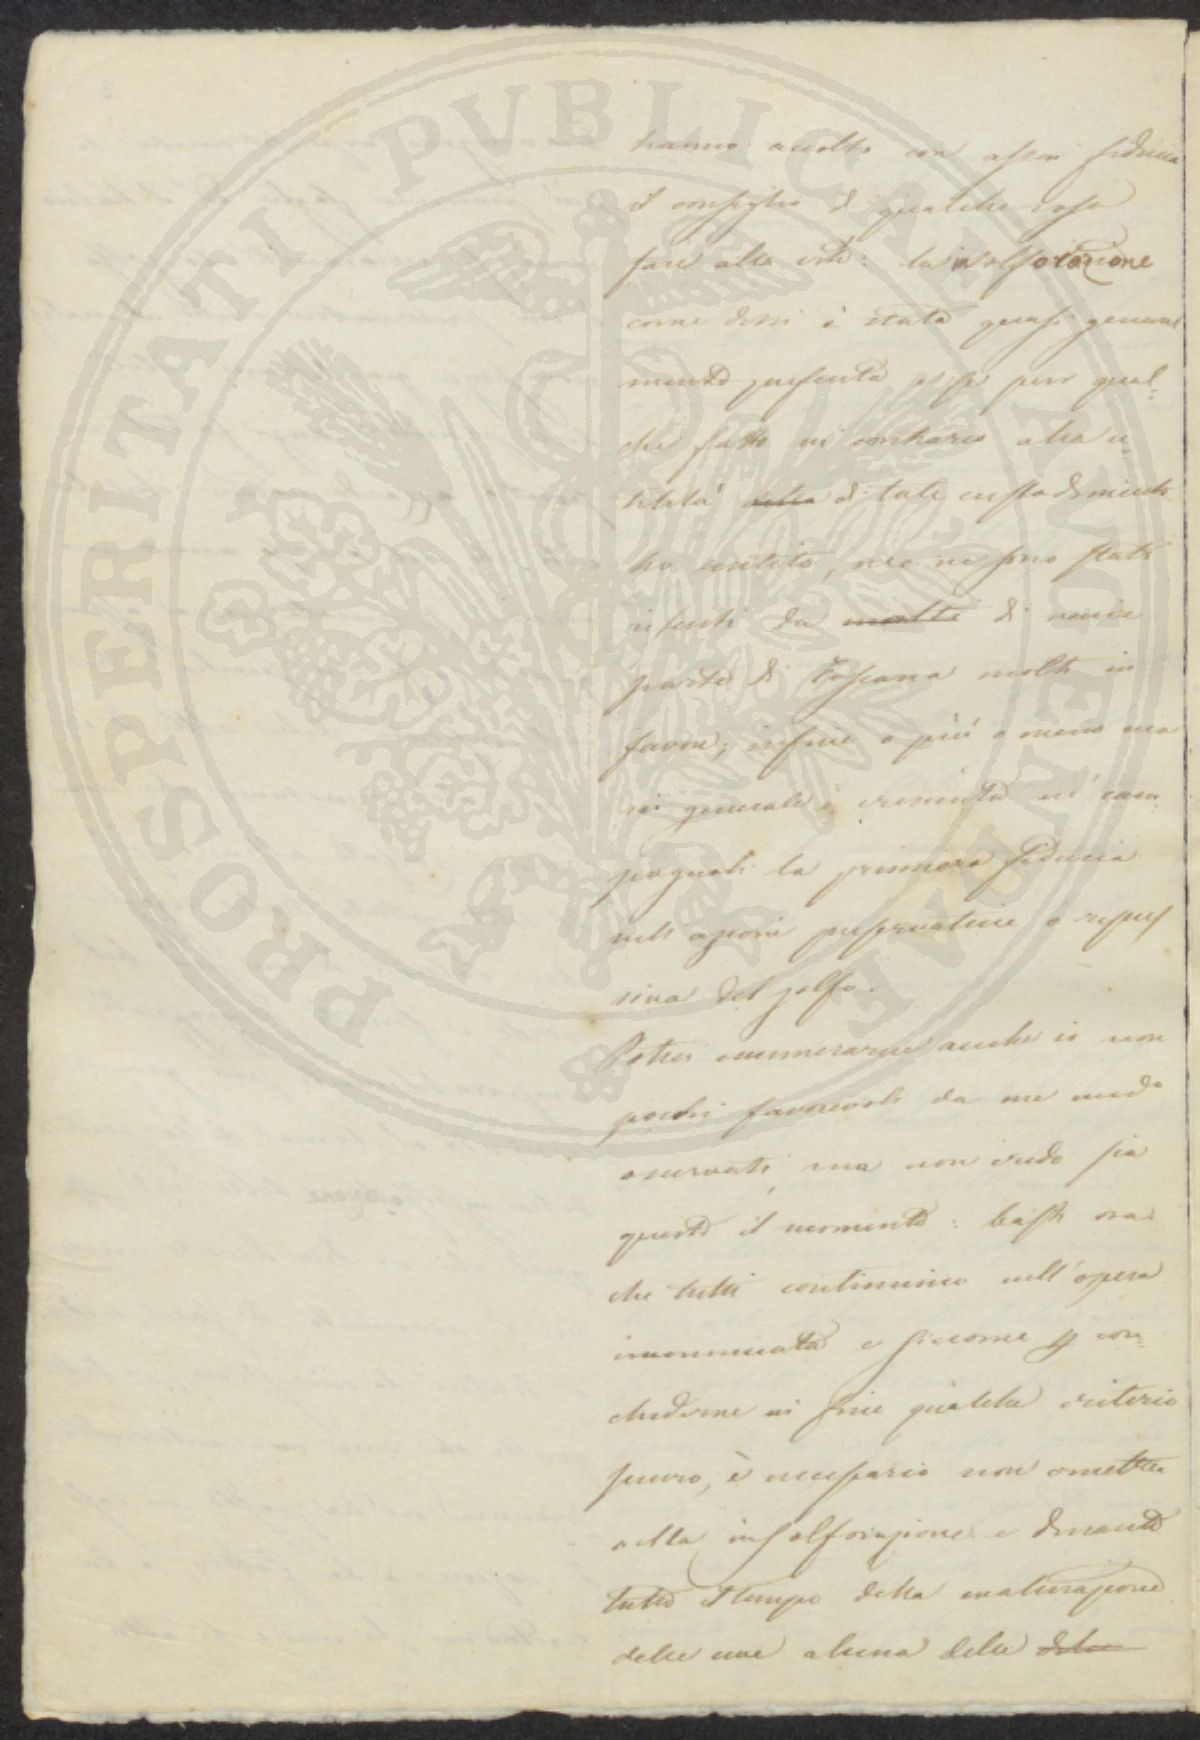 PROSPERITATI PUBLICAE AUGENDAE
hanno accolto con assai fiducia
il consiglio di qualche cosa
fare alla vite: la insolforazione
come dissi è stata quasi general
mente e però qual-
che fatto in contrario alla u-
tilità della di tale
ho sentito, me ne sono stati
riferiti da molti di varie
parti di Toscana molti in
favore; infine o più o meno ma
in generale è cresciuta ne' cam-
pagnoli la primiera fiducia
nell azione preservatrice o repres
siva del zolfo.
Potrei enumerarne anche io non
pochi favorevoli da me med.o
osservati, ma non credo sia
questo il momento: basti ora
che tutti continuino nell'opera
incominciata e siccome p con-
chiuderne in fine qualche criterio
sicuro, è necessario non omettere
nella insolforazione e durante
tutto il tempo della maturazione
delle uve alcuna delle delle